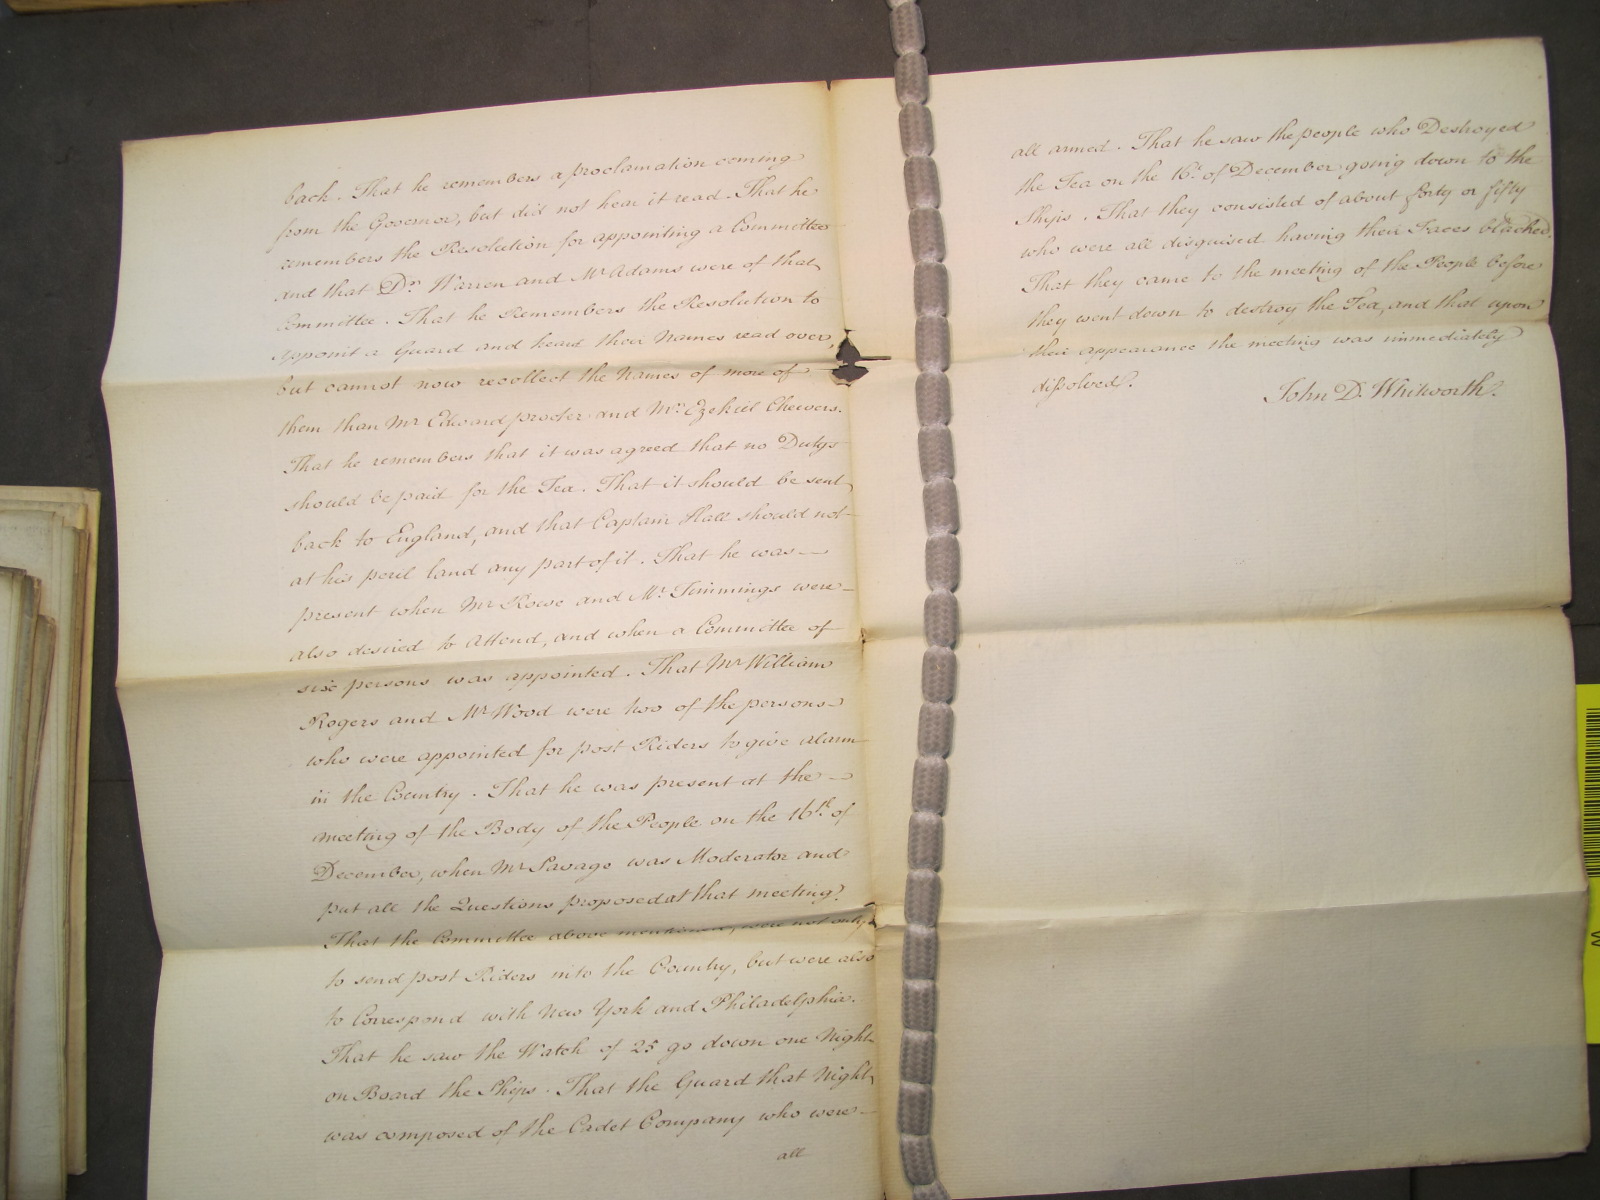 back. That he remembers a proclamation coming
from the Governor, but did not hear it read. That he
remembers the Resolution for appointing a Committee
and that Dr. Warren and Mr. Adams were of that
Committee. That he Remembers the Resolution to
appoint a Guard and heard their Names read over,
but cannot now recollect the Names of more of
them than Mr Edward procter and Mr. Ezekiel Cheevers.
That he remembers that it was agreed that no Dutys
should be paid for the Tea. That it should be sent
back to England, and that Captain Hall should not
at his peril land any part of it. That he was
present when Mr Rowe and Mr. Timmings were
also desired to Attend, and when a Committee of
six persons was appointed. That Mr William
Rogers and Mr Wood were two of the persons
who were appointed for post Riders to give alarm
in the Country. That he was present at the
meeting of the Body of the People on the 16th. of
December, when Mr Savage was Moderator and
put all the Questions proposed at that meeting.
That the Committee above mentioned, were not only
to send post Riders into the Country, but were also
to Correspond with New York and Philadelphia.
That he saw the Watch of 25 go down one Night
on Board the Ships. That the Guard that Night
was composed of the Cadet Company who were
all
all armed. That he saw the people who Destroyed
the Tea on the 16th. of December going down to the
Ships. That they consisted of about forty or fifty
who were all disguised having their Faces blacked.
That they came to the meeting of the People before
they went down to destroy the Tea, and that upon
their appearance the meeting was immediately
dissolved.
John D. Whitworth.